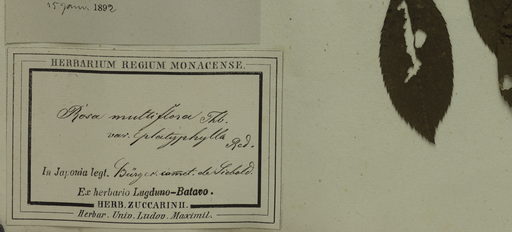 15 janv. 1892
HERBARIUM REGIUM MONACENSE.
Rosa multiflora Thb.
var. platyphylla
Red.
In Japonia legt. Bürger comct. de Siebold.
Ex herbario Lugduno-Batavo.
HERB. ZUCCARINII.
Herbar. Univ. Ludov. Maximil.